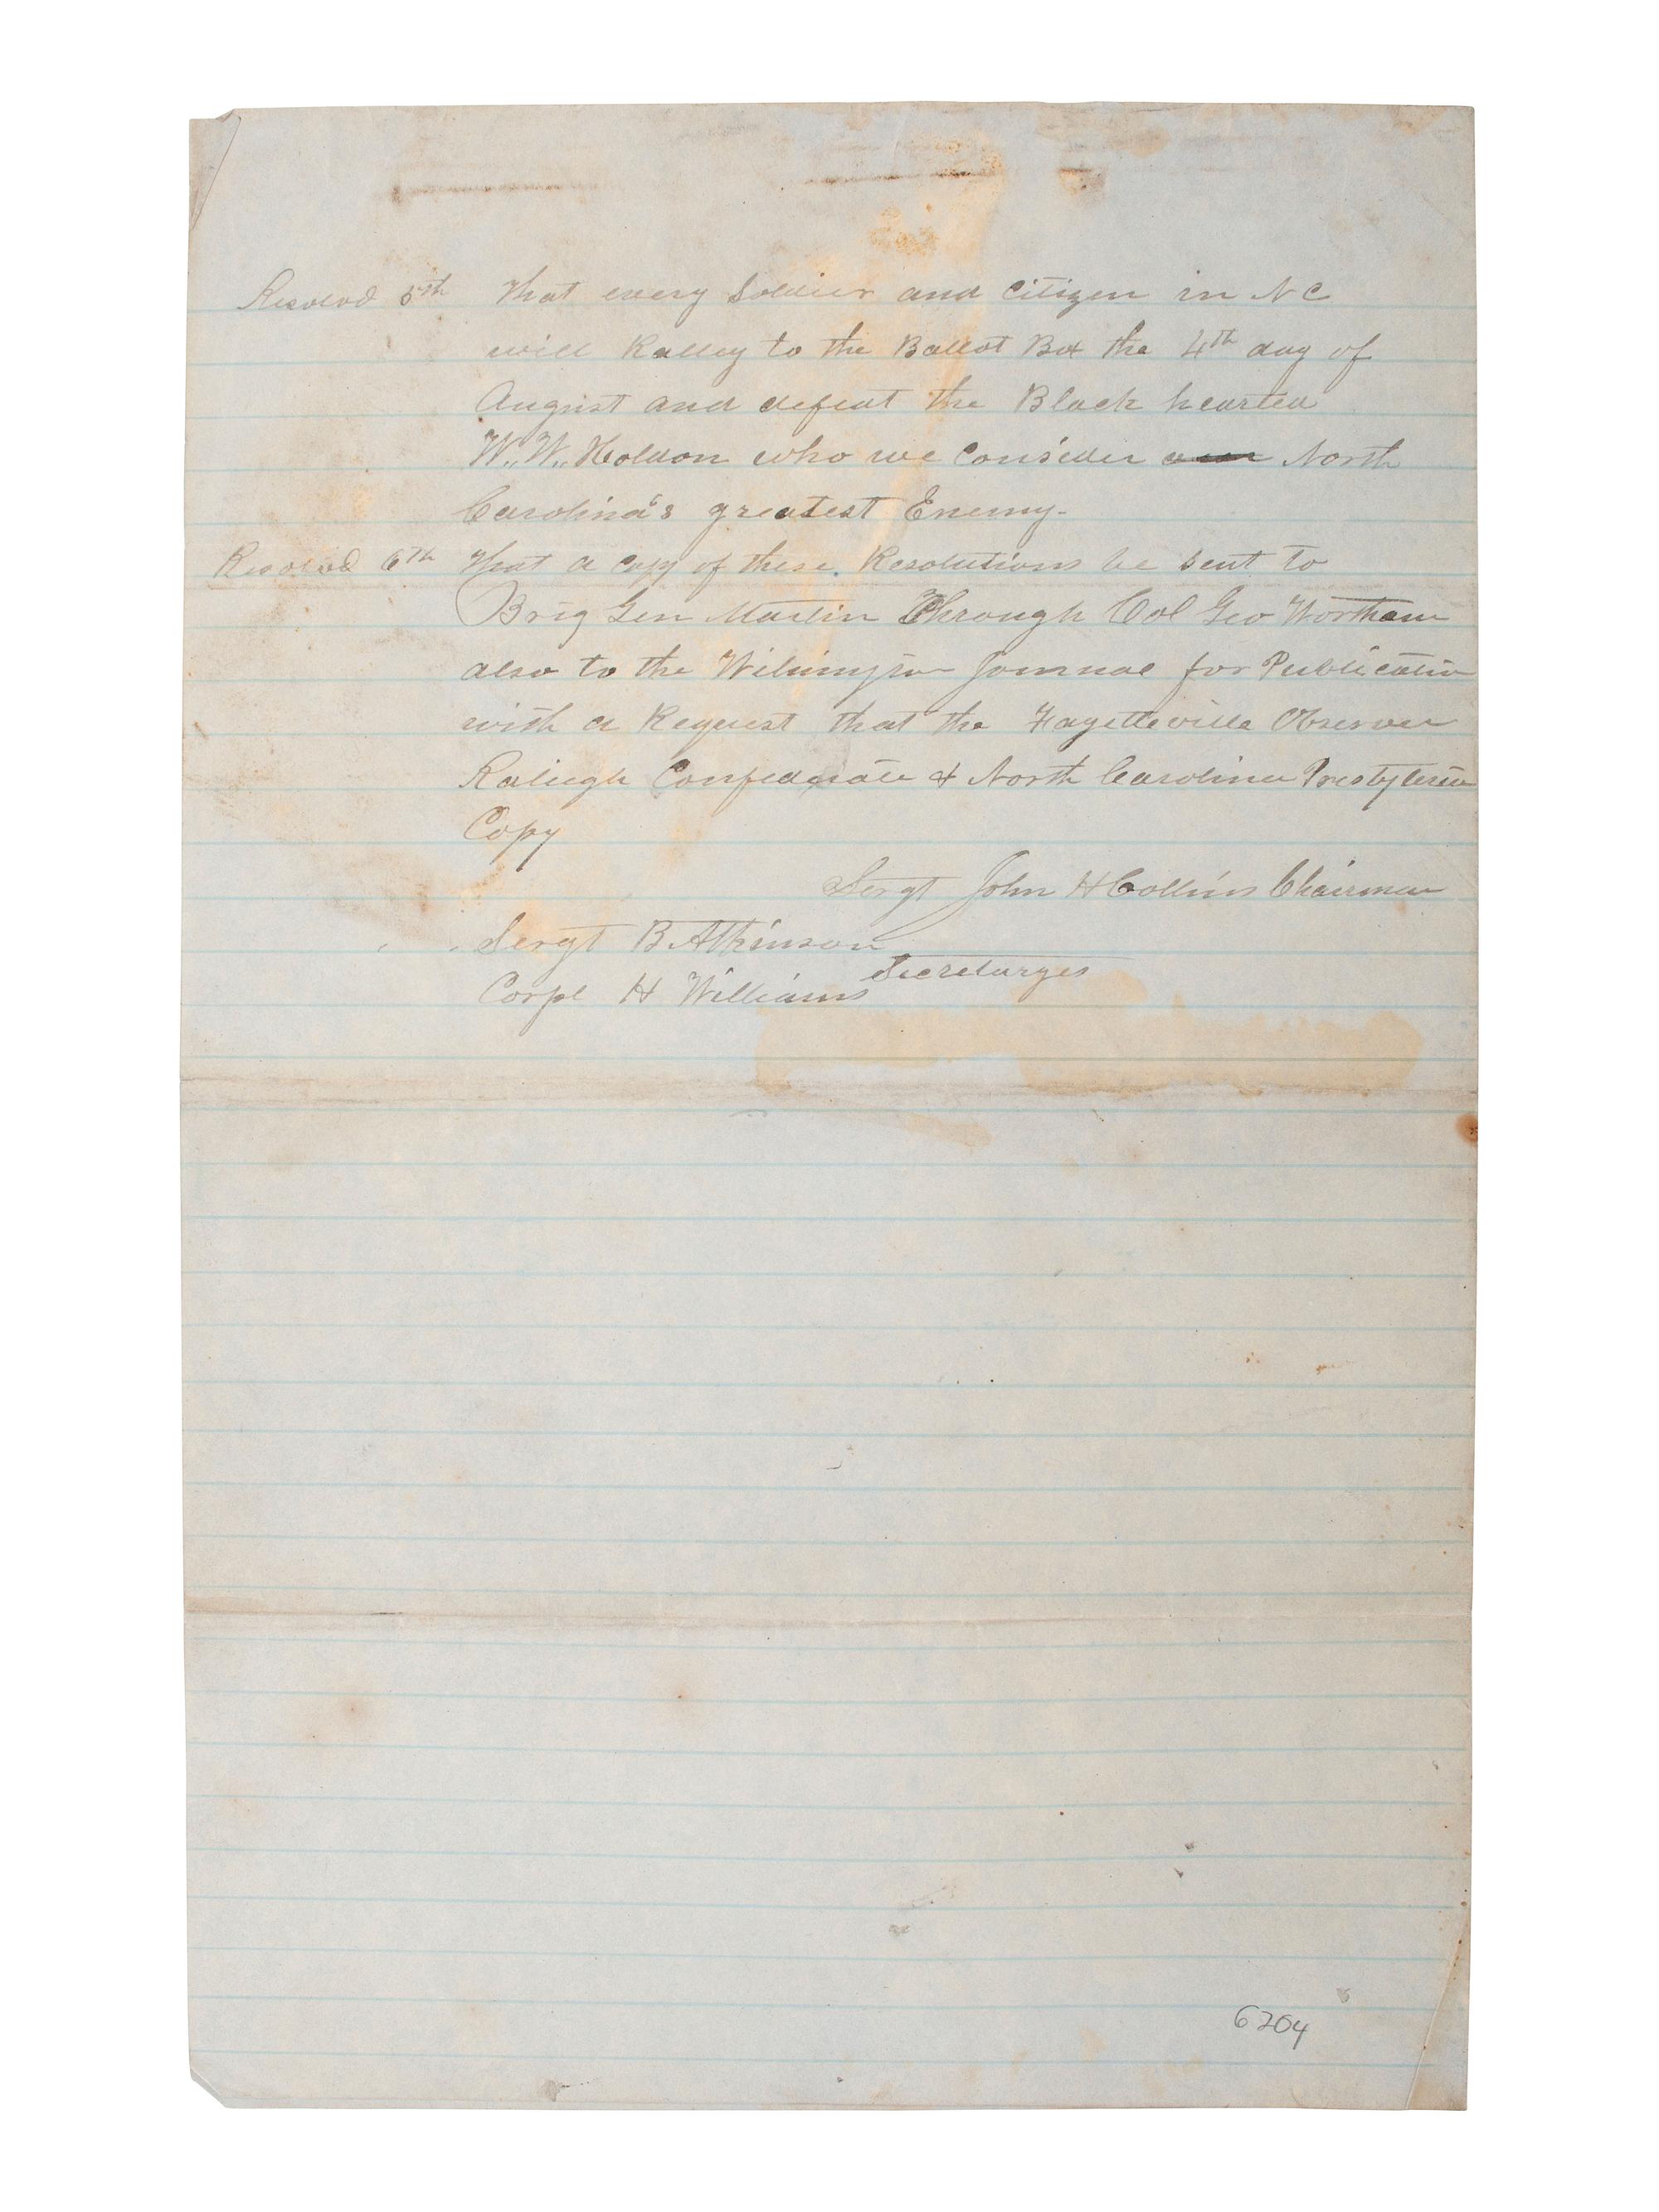 Resolved 5th That every Soldier and Citizen in NC
will Ralley to the Ballot Box the 4th day of
August and defeat the Black hearted
W,, W,, Holdon who we Consider our North
Carolina's greatest Enemy-
Resolved 6th That a Copy of these Resolutions be sent to
Brig Gen Martin Through Col Geo Wortham
also to the Wilmington Journal for Publication
with a Request that the Fayetteville Observer
Raliegh Confederate & North Carolina Presbyterian
Copy
Sergt John H Collins Chairman
Sergt B. Atkinson
Secretaryes
Corpl H Williams
6204